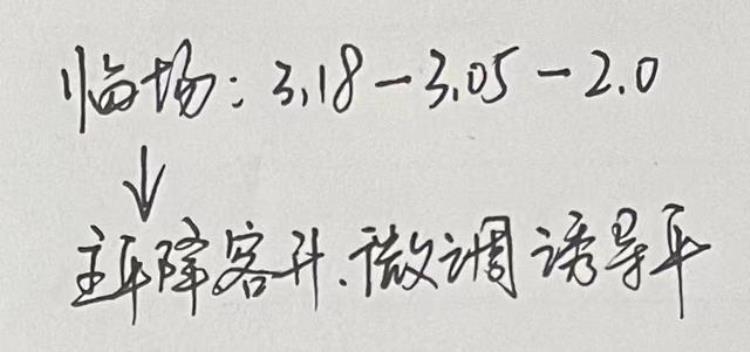 临场：3.18-3.05-2.0
↓
主平降客升.微调诱导平